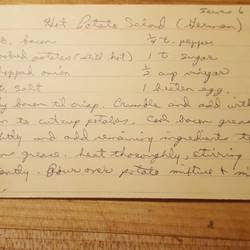 Serves 6
Hot Potato Salad (German)
b. bacon 1/4 t. pepper
cooked potatoes (sli'd hot) 1 t sugar
chopped onion 1/2 cup vinegar
t. salt 1 beaten egg.
y bacon til crisp. Crumble and add with
n to cut up potatoes. Cool bacon grease
htly and add remaining ingredients to
on grease. Heat thoroughly, stirring
antly. Pour over potato mixture & mi